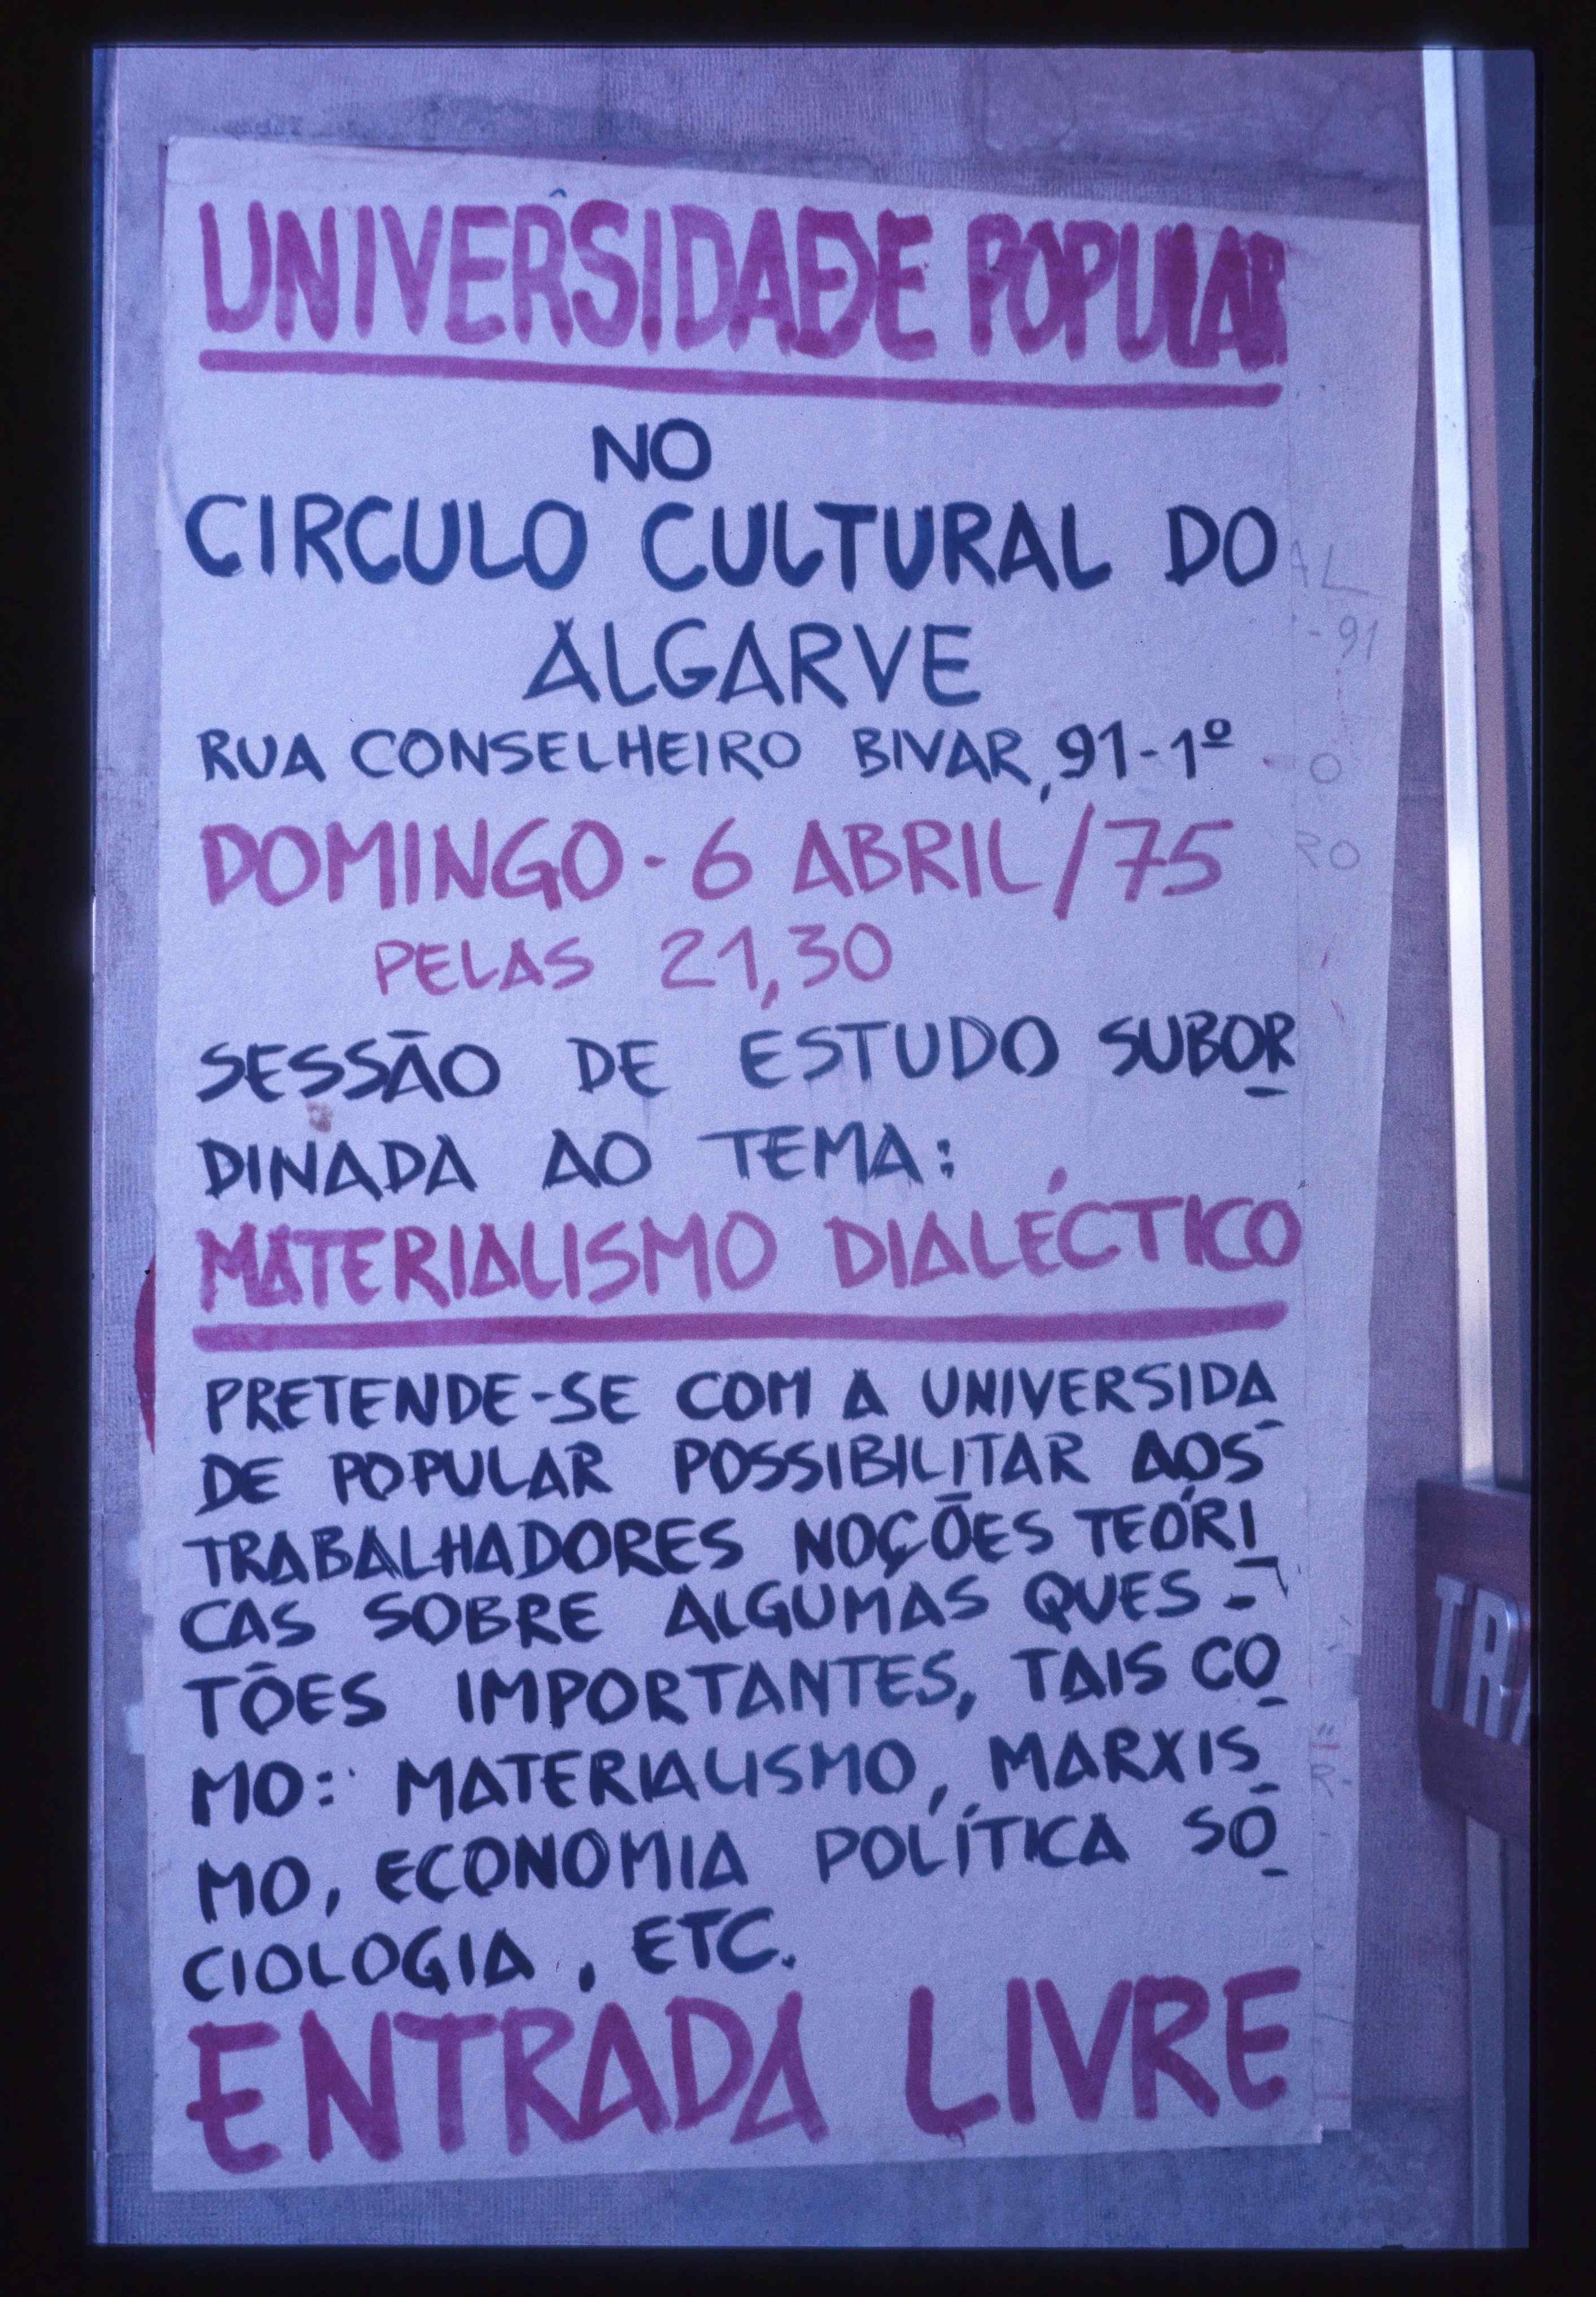 UNIVERSIDADE POPULAR
NO
CIRCULO CULTURAL DO
ALGARVE
RUA CONSELHEIRO BIVAR, 91-1º
DOMINGO - 6 ABRIL/75
PELAS 21,30
SESSÃO DE ESTUDO SUBOR
DINADA AO TEMA:
MATERIALISMO DIALÉCTICO
PRETENDE-SE COM A UNIVERSIDA
DE POPULAR POSSIBILITAR AOS
TRABALHADORES NOÇÕES TEÓRI
CAS SOBRE ALGUMAS QUES-
TÕES IMPORTANTES, TAIS CO
MO: MATERIALISMO, MARXIS
MO, ECONOMIA POLÍTICA SO
CIOLOGIA, ETC.
ENTRADA LIVRE